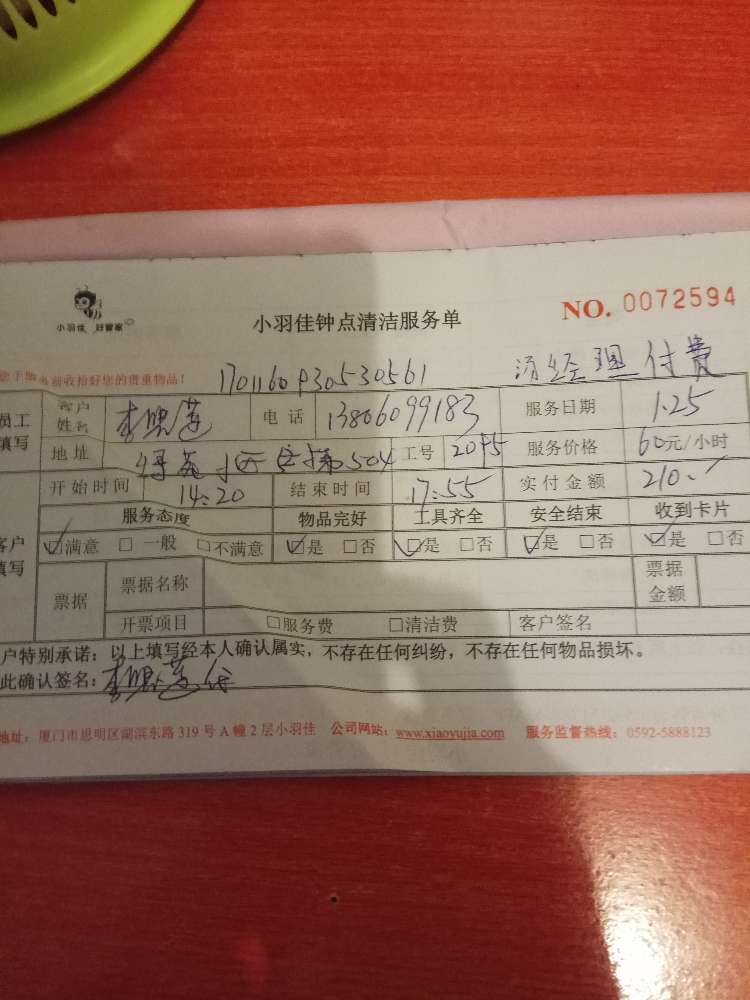 小羽佳 好管家
小羽佳钟点清洁服务单
NO. 0072594
前收拾好您的贵重物品!
经理 付费
员工填写 客户姓名 李 莲 电话 13806099183 服务日期 1.25
地址 504 工号 2075 服务价格 60元/小时
开始时间 14:20 结束时间 17:55 实付金额 210.
服务态度 物品完好 工具齐全 安全结束 收到卡片
客户填写 ☑满意 □一般 □不满意 ☑是 □否 ☑是 □否 ☑是 □否 ☑是 □否
票据 票据名称 票据金额
开票项目 □服务费 □清洁费 客户签名
户特别承诺:以上填写经本人确认属实,不存在任何纠纷,不存在任何物品损坏。
此确认签名:李 莲代
地址:厦门市思明区湖滨东路 319 号 A 幢 2 层小羽佳 公司网站:www.xiaoyujia.com 服务监督热线:0592-5888123